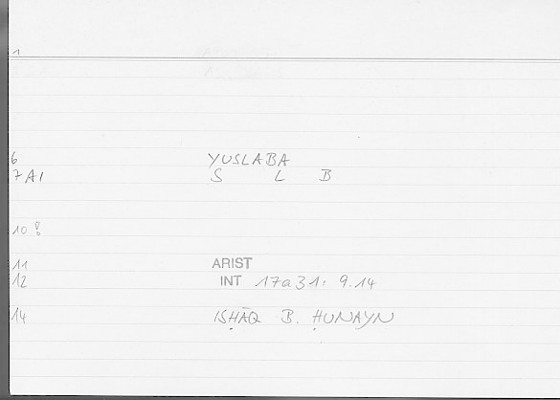 1
6 YUSLABA
7A1 S L B
10
11 ARIST
12 INT 17a31: 9.14
14 ISḤĀQ B. ḤUNAYN